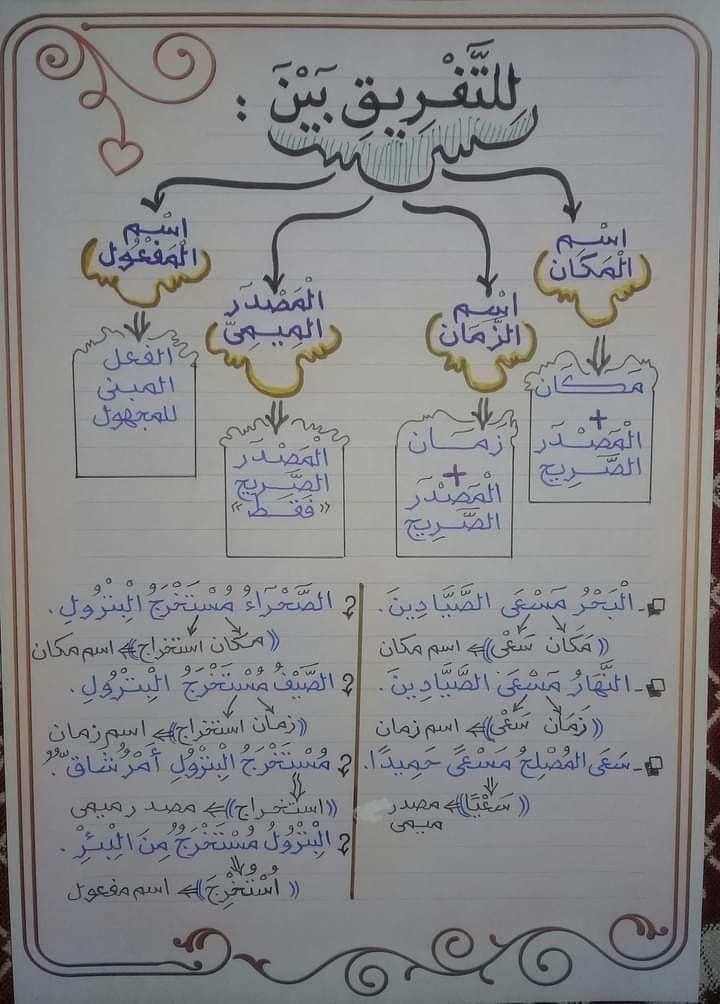 للتَّفْرِيقِ بَيْنَ :
اسْم
الْمَكَان
مَكَان
+
الْمَصْدَر
الصَّرِيح
اسْم
الزَّمَان
زَمَان
+
الْمَصْدَر
الصَّرِيح
الْمَصْدَر
الْمِيمِيّ
الْمَصْدَر
الصَّرِيح
«فَقَط»
اسْم
الْمَفْعُول
الفعل
المبنى
للمجهول
الْبَحْرُ مَسْعَى الصَّيَّادِينَ.
((مَكَان سَعْى)) اسم مكان
النَّهَارُ مَسْعَى الصَّيَّادِينَ.
((زَمَان سَعْى)) اسم زمان
سَعَى المُصْلِحُ مَسْعًى حَمِيدًا.
((سَعْيًا)) مصدر
ميمى
الصَّحْرَاءُ مُسْتَخْرَجُ الْبِتْرُولِ.
((مكان استخراج)) اسم مكان
الصَّيْفُ مُسْتَخْرَجُ الْبِتْرُولِ.
((زمان استخراج)) اسم زمان
مُسْتَخْرَجُ الْبِتْرُولِ أَمْرٌ شَاقٌّ.
((استخراج)) مصدر ميمى
الْبِتْرُولُ مُسْتَخْرَجٌ مِنَ الْبِئْرِ.
((اُسْتُخْرِجَ)) اسم مفعول